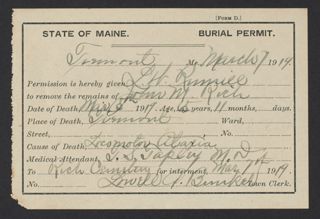 [FORM D.]
STATE OF MAINE. BURIAL PERMIT.
Tremont, Me. March 7 1919
Permission is hereby given
to remove the remains of John M. Rich
Date of Death, Mar 5th 1919. Age, years, 11 months, days.
Place of Death, Tremont Ward,
Street, No.
Cause of Death, Locomotor Ataxia
Medical Attendant, M. D.
To Rich Cemetery for interment, Mar 7 1919.
Lowell Town Clerk.